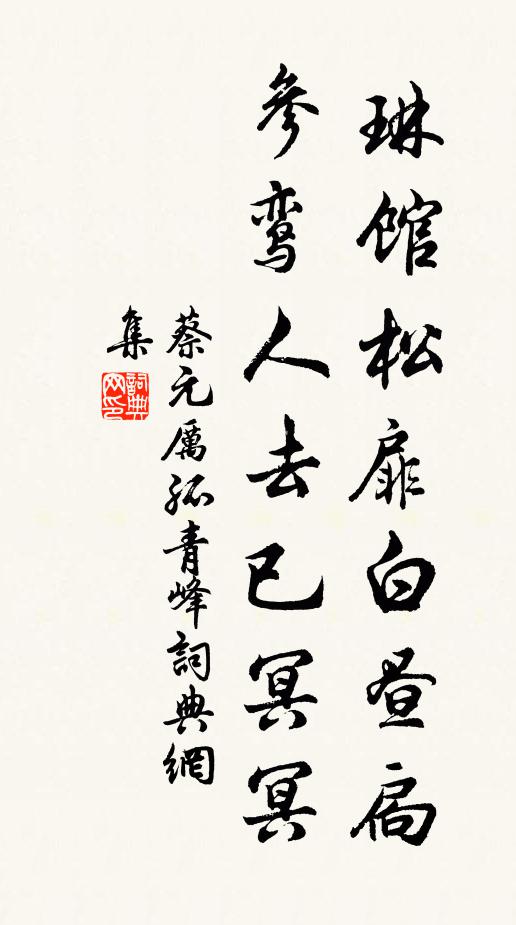 琳馆松扉白昼扃
参鸾人去已冥冥
蔡元厲孤青峰詞典網
集
詞典网印